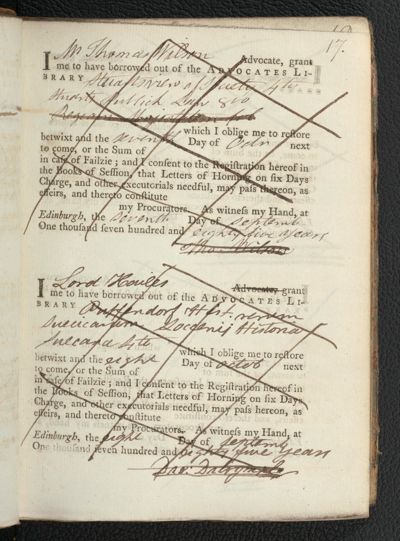 17.
I Mr Thomas Wilson Advocate, grant
me to have borrowed out of the ADVOCATES LI-
BRARY
betwixt and the seventh which I oblige me to restore
Day of Octr next
to come, or the Sum of
in case of Failzie; and I consent to the Registration hereof in
the Books of Session, that Letters of Horning on six Days
Charge, and other executorials needful, may pass thereon, as
effeirs, and thereto constitute
my Procurators. As witness my Hand, at
Edinburgh, the seventh Day of Septemr
One thousand seven hundred and eighty five years
Tho. Wilson
I Lord Hailes Advocate, grant
me to have borrowed out of the ADVOCATES LI-
BRARY Puffendorf Hist. rerum
Suecicarum Loccenij Historia
Suecana 4to
which I oblige me to restore
betwixt and the eight Day of Octob next
to come, or the Sum of
in case of Failzie; and I consent to the Registration hereof in
the Books of Session, that Letters of Horning on six Days
Charge, and other executorials needful, may pass hereon, as
effeirs, and thereto constitute
my Procurators. As witness my Hand, at
Edinburgh, the eight Day of Septemb
One thousand seven hundred and eighty five years
Dav: Dalrymple